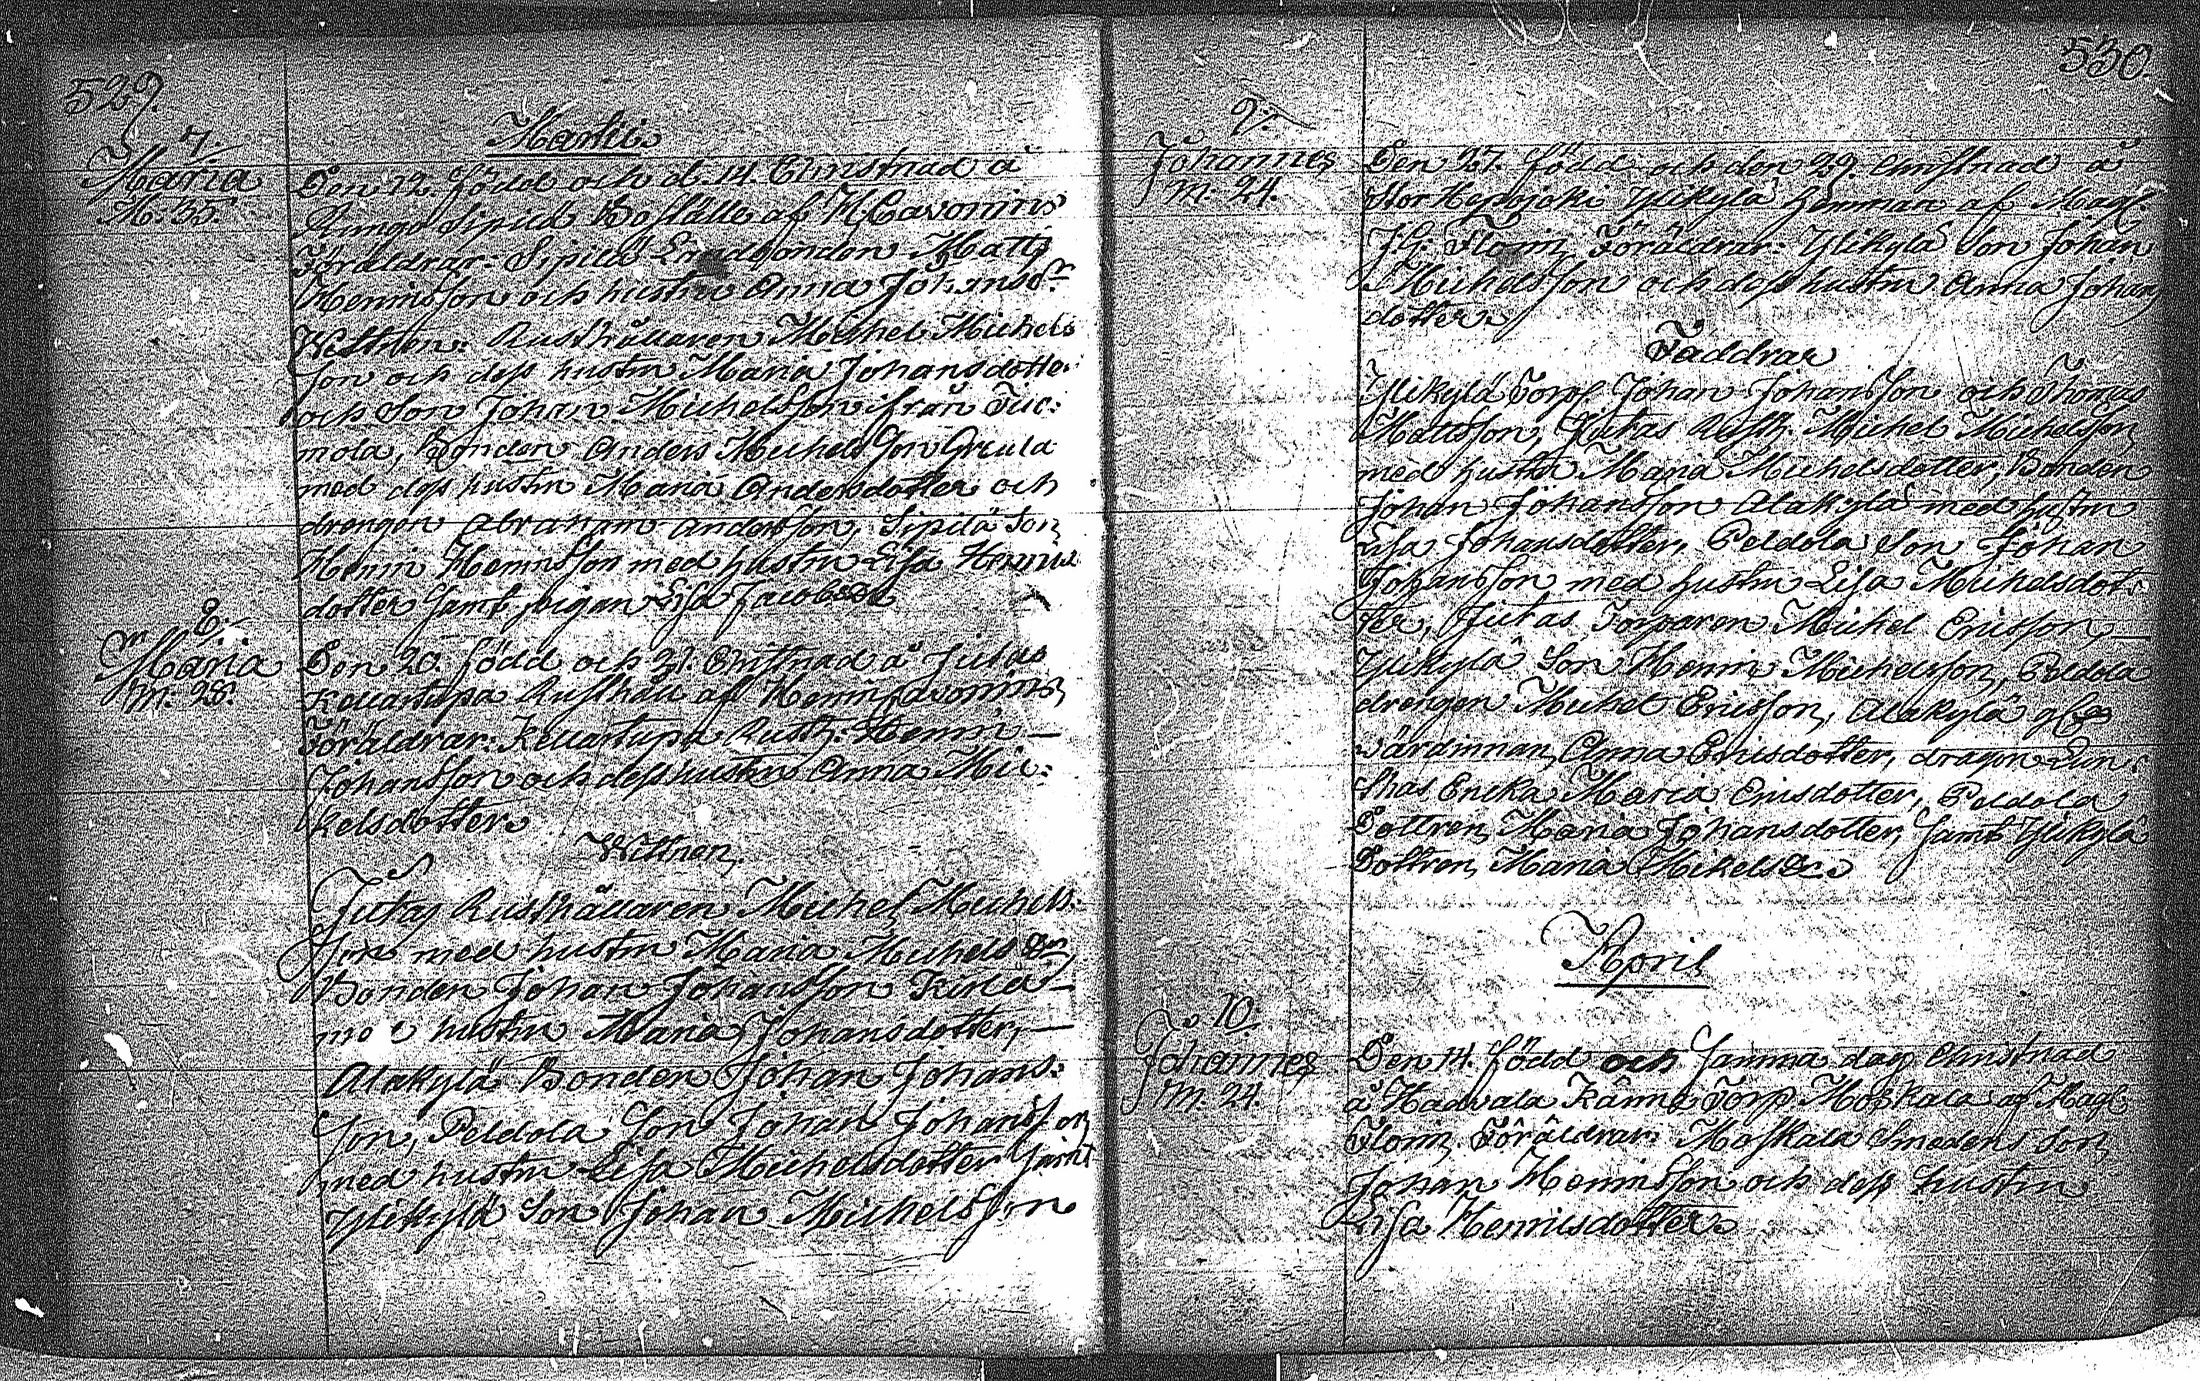 529.
Martii
7.
Maria
M: 35.
Den 12. född och d. 14. Christnad å
Rungo Sipilä Boställe af H. Cavonius
Föräldrar: Sipilä Landbonden Matts
Henricsson och hustru Anna Johansdr
Wittnen: Rusthållaren Michel Michels
son och dess hustru Maria Johansdotter
och Son Johan Michelsson ifrån Tuo:
mola, Bonden Anders Michelsson
med dess hustru Maria Andersdotter och
drengen Abraham Andersson, Sipilä Son
Henric Henricsson med hustru Lisa Henrics
dotter samt pigan Lisa Jacobsdr
8:
Maria
M: 28.
Den 20. född och 21. Christnad å Jutas
Kellartupa Rusthåll af Henric Cavonius,
Föräldrar: Kellartupa Rusth: Henric
Johansson och dess hustru Anna Mic:
helsdotter
Wittnen,
Jutas Rusthållaren Michel Michels:
son med hustru Maria Michelsdr,
Bonden Johan Johansson
hustru Maria Johansdotter,
Alakylä Bonden Johan Johans:
son, Peldola Son Johan Johansson
med hustru Lisa Michelsdotter samt
Ylikylä Son Johan Michelsson
530.
9:
Johannes
M: 24.
Den 27. född och den 29. Christnad å
Stor Heposjoki Ylikylä hemman af Mag:
J. G. Florin, Föräldrar: Ylikylä Son Johan
Michelsson och dess hustru Anna Johans
dotter
Faddrar
Ylikylä Torp. Johan Johansson och Thomas
Mattsson, Jutas Rusth. Michel Michelsson
med hustru Maria Michelsdotter, Bonden
Johan Johansson Alakylä med hustru
Lisa Johansdotter, Peldola Son Johan
Johansson med hustru Lisa Michelsdot:
ter, Jutas Torparen Michel Ericsson
Ylikylä Son Henric Michelsson, Peldola
drengen Michel Ericsson, Alakylä gl
värdinnan Anna Ericsdotter, dragon
Enka Maria Ericsdotter, Peldola
Dottren Maria Johansdotter, samt Ylikylä
Dottren Maria Mikelsdr
April
10.
Johannes
M: 24.
Den 14. född och samma dag Christnad
å Hadvala Torp Moskala af Mag:
Florin, Föräldrar: Moskala Smedens Son
Johan Henricsson och dess hustru
Lisa Henricsdotter